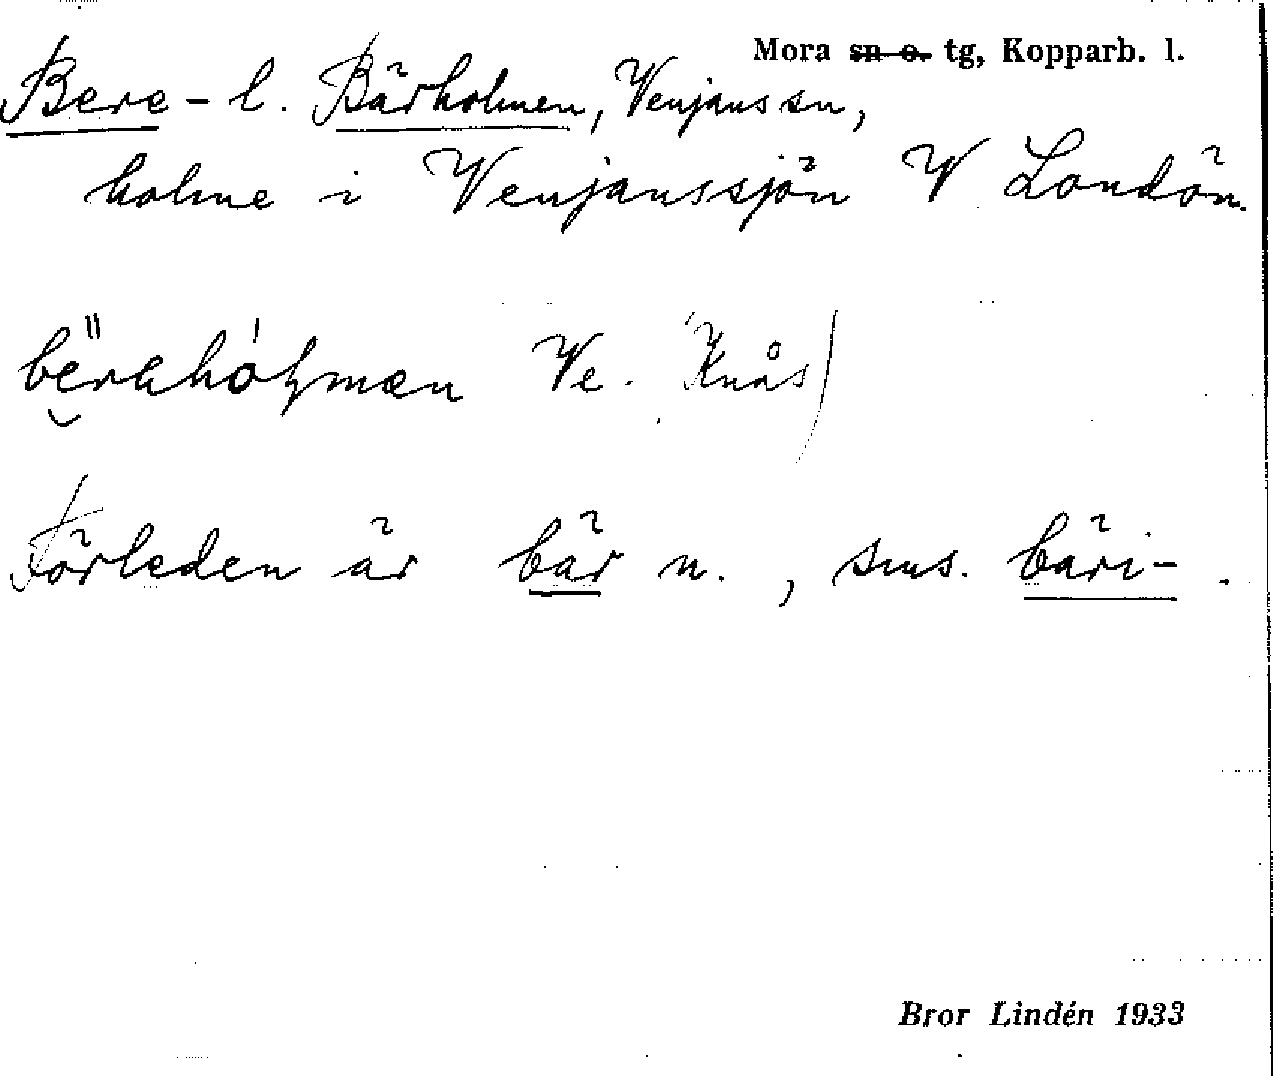 Mora sn o. tg, Kopparb. l.
Bere- l. Bärholmen, Venjans sn,
holme i Venjanssjön V Londön.
Ve. Knås)
Förleden är bär n., sms. bäri-.
Bror Lindén 1933